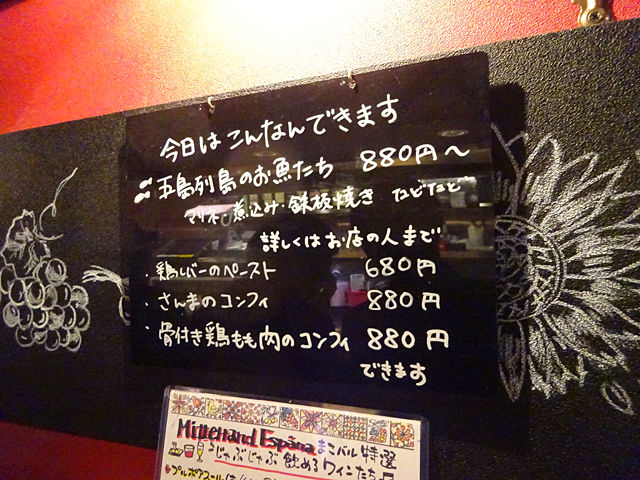 今日はこんなんできます
五島列島のお魚たち 880円〜
マリネ・煮込み・鉄板焼き などなど
詳しくはお店の人まで
・鶏レバーのペースト 680円
・さんまのコンフィ 880円
・骨付き鶏もも肉のコンフィ 880円
できます
España まこバル特選
うじゃぶじゃぶ飲めるワインたち